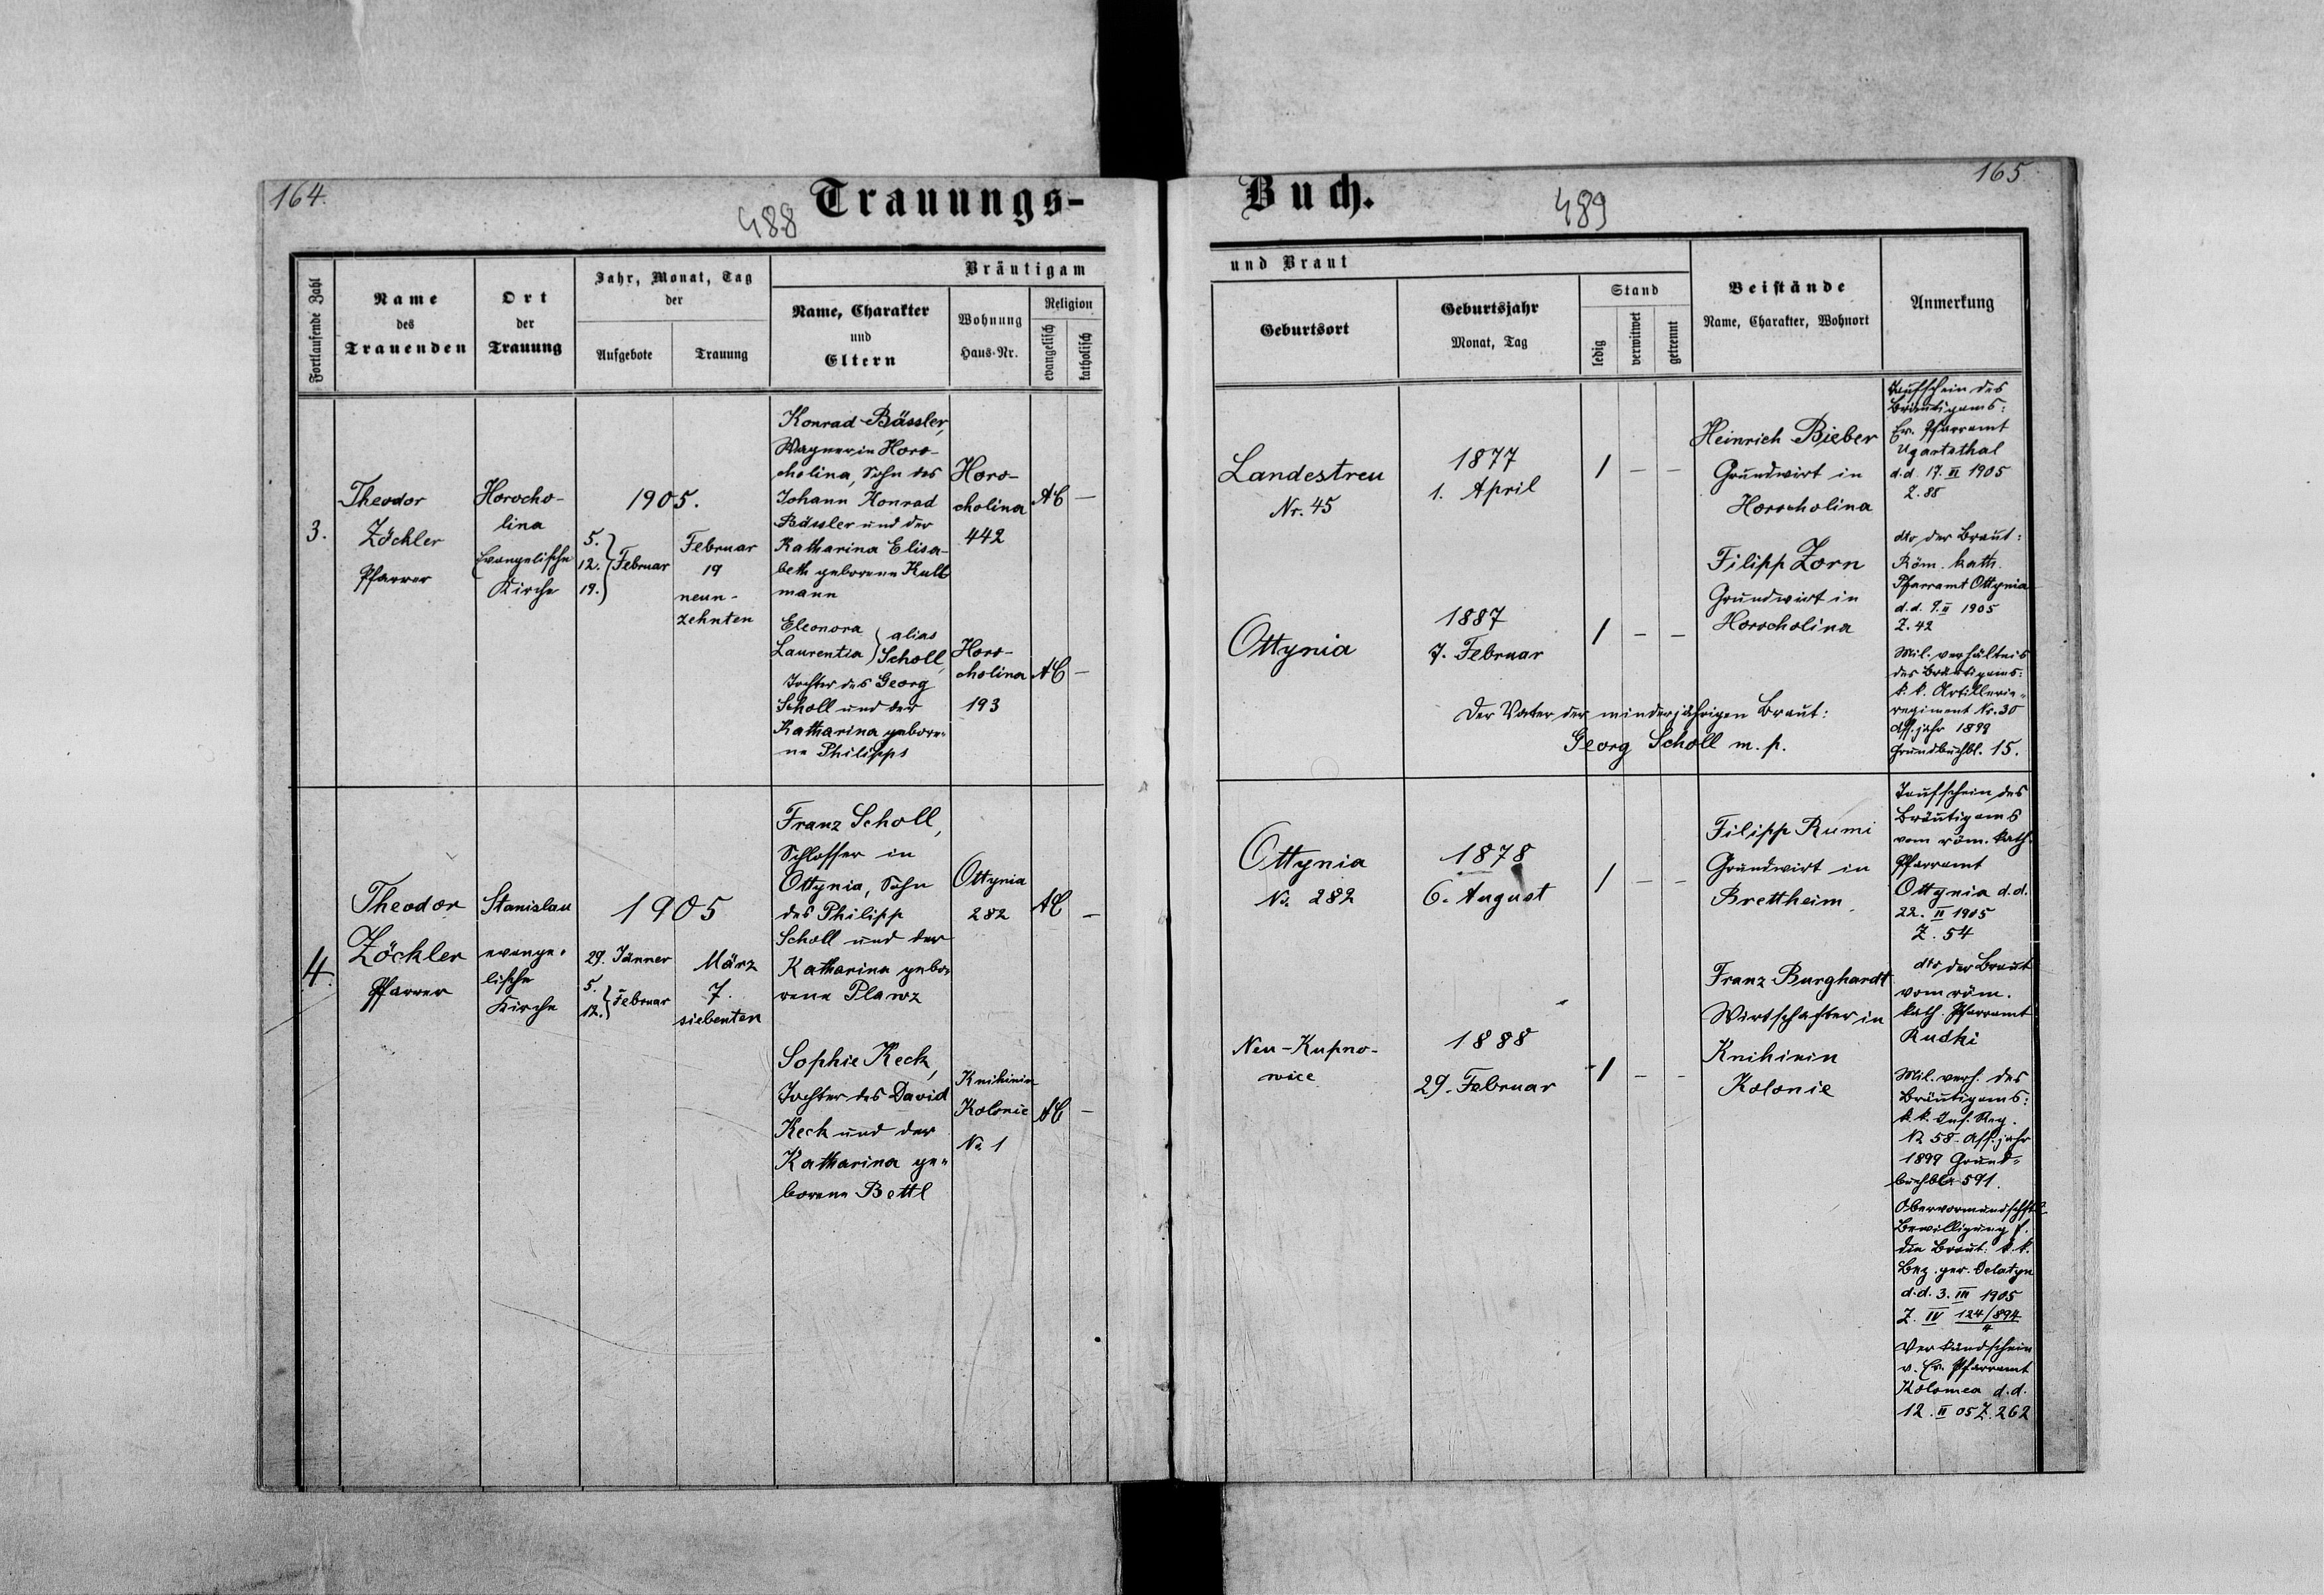 164.
488
Trauungs-
Fortlaufende Zahl
Name
des
Trauenden
Ort
der
Trauung
Jahr, Monat, Tag
der
Aufgebote
Trauung
Bräutigam
Name, Charakter
und
Eltern
Wohnung
Haus-Nr.
Religion
evangelisch
katholisch
3.
Theodor
Zöckler
Pfarrer
Horocho-
lina
Evangelische
Kirche
1905.
5.
12. } Februar
19.
Februar
19
neun-
zehnten
Konrad Bässler,
Wagner in Horo-
cholina, Sohn des
Johann Konrad
Bässler und der
Katharina Elisa-
beth geborene Kull
mann
Horo-
cholina
442
AC —
Eleonora } alias
Laurentia } Scholl,
Tochter des Georg
Scholl und der
Katharina gebore-
ne Philipps
Horo-
cholina
193
AC —
4.
Theodor
Zöckler
Pfarrer
Stanislau
evange-
lische
Kirche
1905
29. Jänner
5.
12. } Februar
März
7.
siebenten
Franz Scholl,
Schlosser in
Ottynia, Sohn
des Philipp
Scholl und der
Katharina gebo-
rene Plawz
Ottynia
282
AC —
Sophie Keck,
Tochter des David
Keck und der
Katharina ge-
borene Bettl
Knihinin
Kolonie
No 1
AC —
165
Buch.
489
und Braut
Geburtsort
Geburtsjahr
Monat, Tag
Stand
ledig
verwitwet
getrennt
Beistände
Name, Charakter, Wohnort
Anmerkung
Landestreu
Nr. 45
1877
1. April
1 — —
Heinrich Bieber
Grundwirt in
Horocholina
Ottynia
1887
7. Februar
1 — —
Filipp Zorn
Grundwirt in
Horocholina
Der Vater der minderjährigen Braut:
Georg Scholl m. p.
Taufschein des
Bräutigams:
Ev. Pfarramt
Ugartsthal
d.d. 17. II 1905
Z. 88
dto der Braut:
Röm. kath.
Pfarramt Ottynia
d.d. 9. II 1905
Z. 42
Mil. verhältnis
des Bräutigams:
k. k. Artillerie-
regiment Nr. 30
Ass.jahr 1899
Grundbuchbl. 15.
Ottynia
No 282
1878
6. August
1 — —
Filipp Rumi
Grundwirt in
Brettheim
Neu-Kupno-
wice
1888
29. Februar
1 — —
Franz Burghardt
Wirtschafter in
Knihinin
Kolonie
Taufschein des
Bräutigams
vom röm. kath.
Pfarramt
Ottynia d.d.
22. II 1905
Z. 54
dto der Braut
vom röm.
kath. Pfarramt
Rudki
Mil. verh. des
Bräutigams:
k. k. Inf. Reg.
No 58. Ass.jahr
1899 Grund-
buchbla 591.
Obervormundschftl.
Bewilligung f.
die Braut: k. k.
Bez. ger. Delatyn
d.d. 3. III 1905
Z. IV 124/894
4
Verkündschein
v. Ev. Pfarramt
Kolomea d.d.
12. II 05 Z. 262